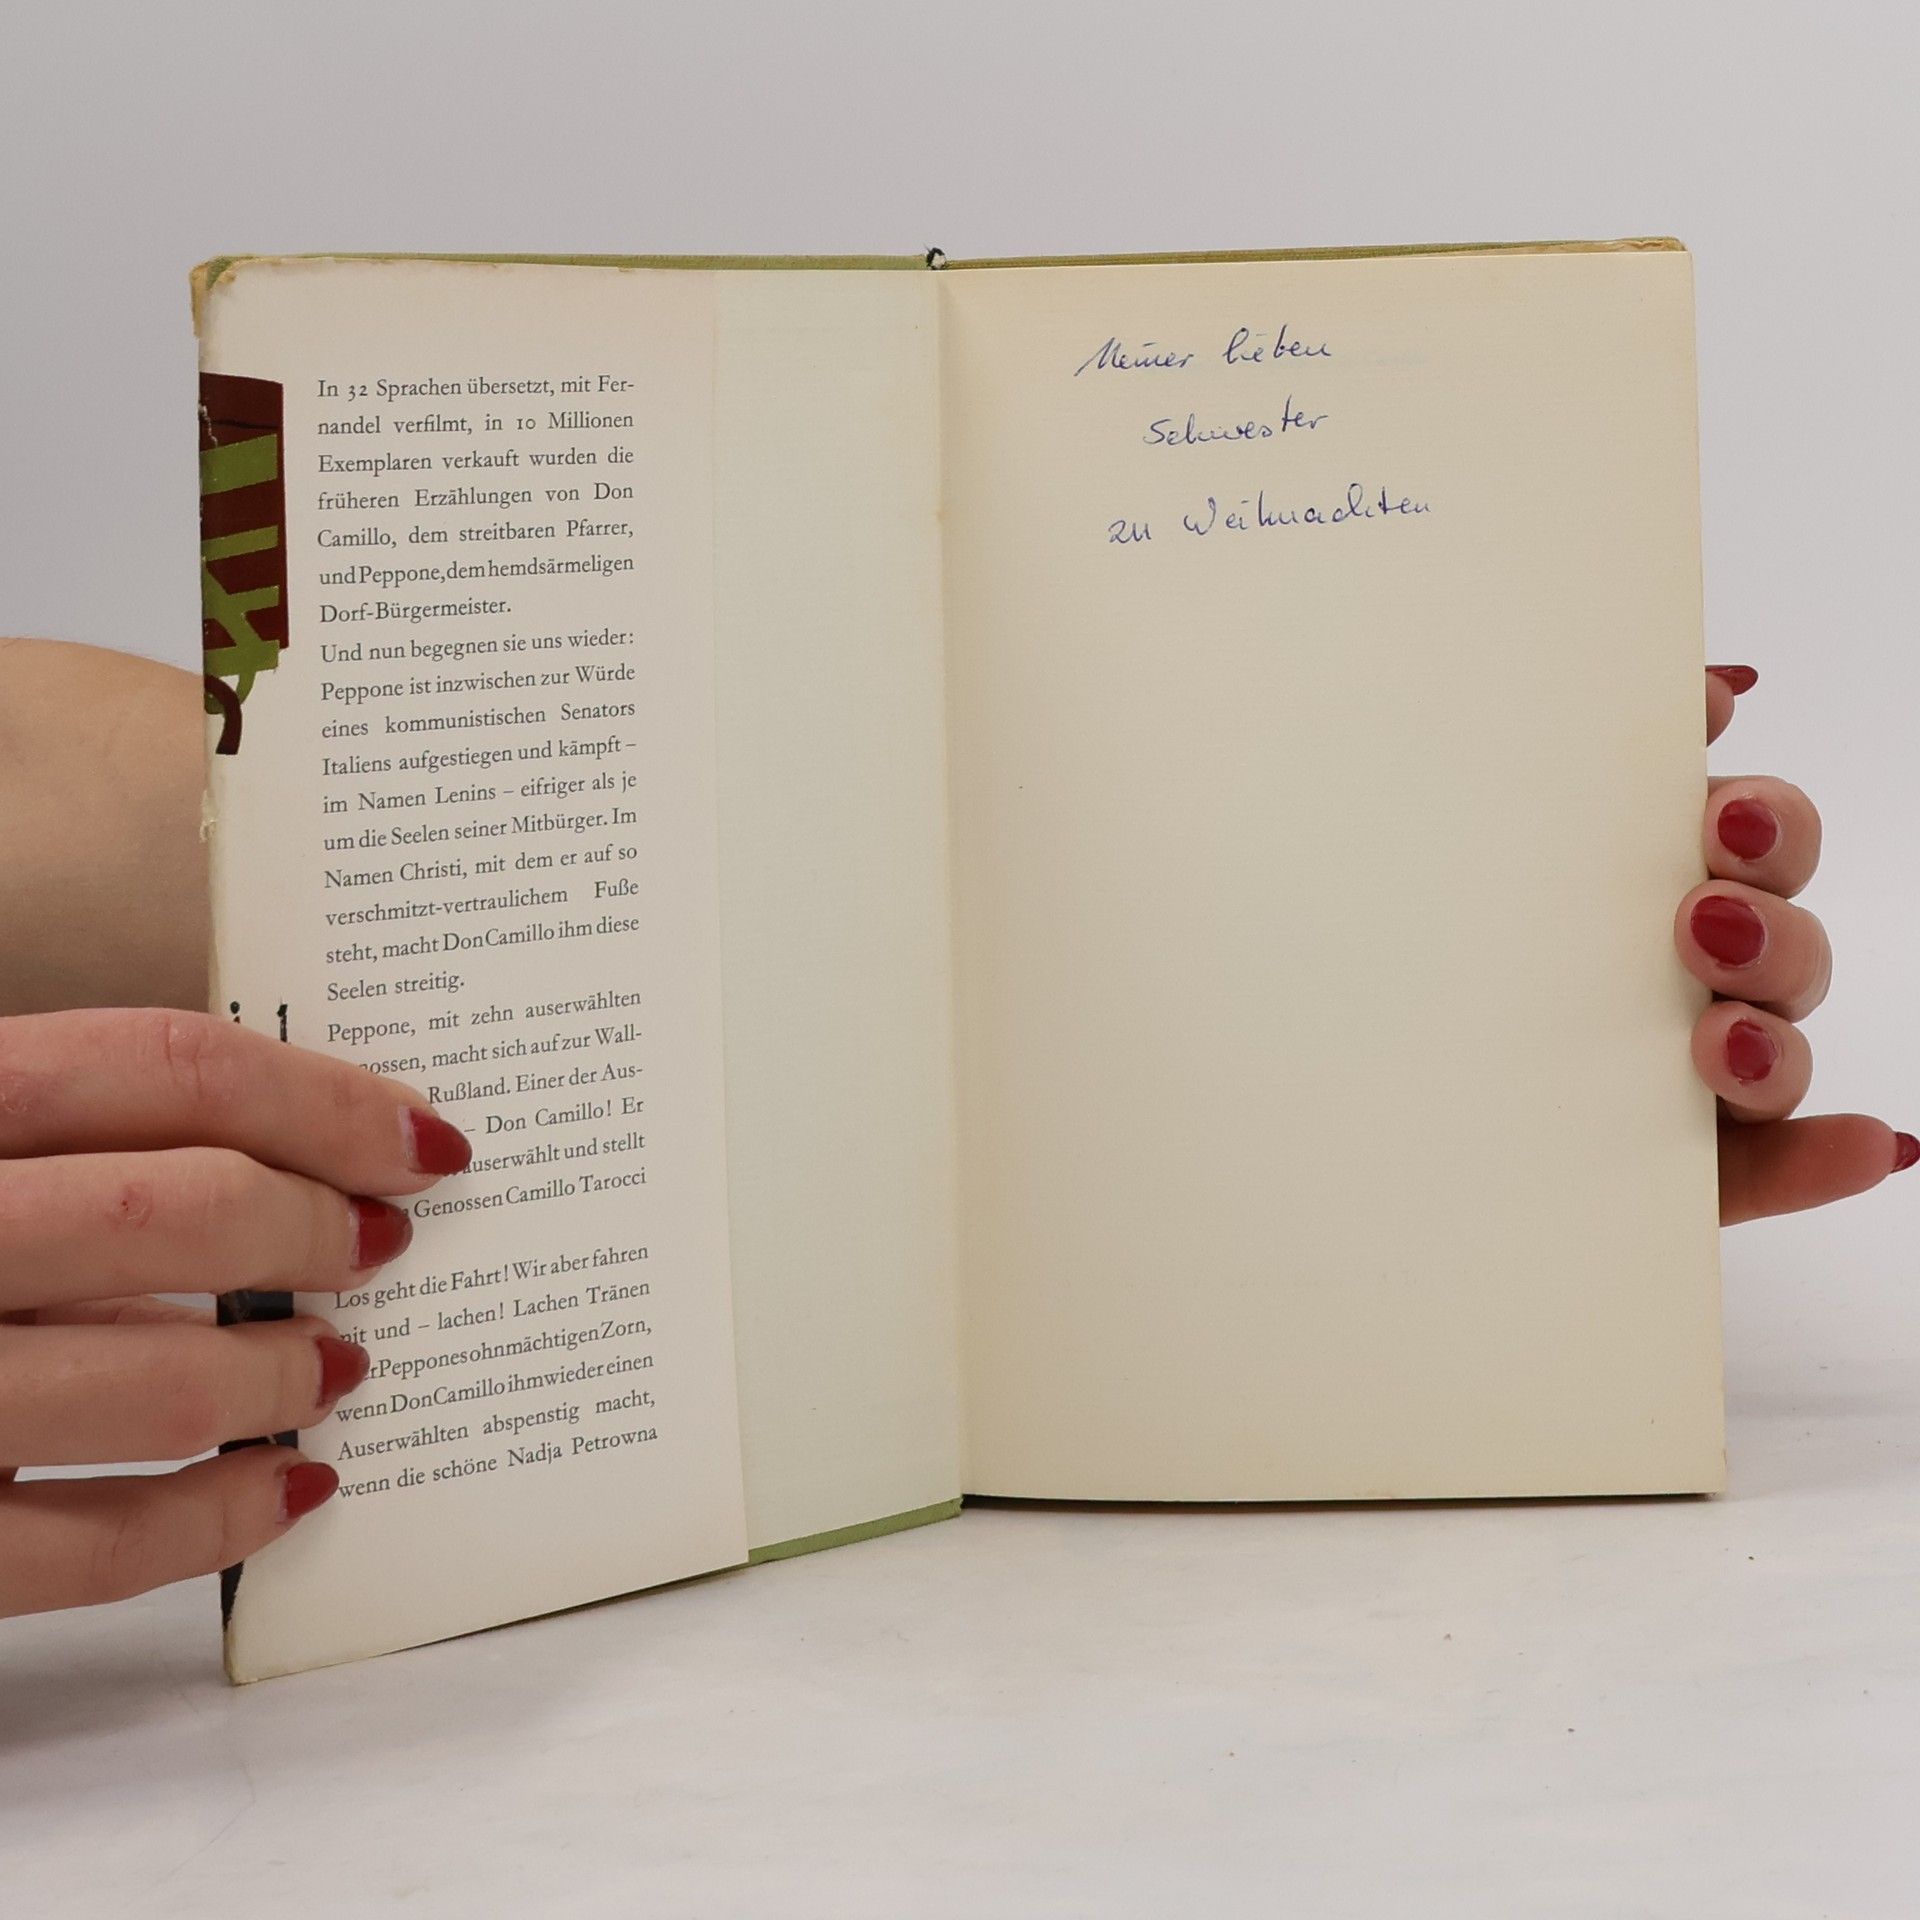 In 32 Sprachen übersetzt, mit Fer-
nandel verfilmt, in 10 Millionen
Exemplaren verkauft wurden die
früheren Erzählungen von Don
Camillo, dem streitbaren Pfarrer,
und Peppone, dem hemdsärmeligen
Dorf-Bürgermeister.
Und nun begegnen sie uns wieder:
Peppone ist inzwischen zur Würde
eines kommunistischen Senators
Italiens aufgestiegen und kämpft –
im Namen Lenins – eifriger als je
um die Seelen seiner Mitbürger. Im
Namen Christi, mit dem er auf so
verschmitzt-vertraulichem Fuße
steht, macht Don Camillo ihm diese
Seelen streitig.
Peppone, mit zehn auserwählten
macht sich auf zur Wall-
Rußland. Einer der Aus-
– Don Camillo! Er
auserwählt und stellt
Genossen Camillo Tarocci
Los geht die Fahrt! Wir aber fahren
mit und – lachen! Lachen Tränen
Peppones ohnmächtigen Zorn,
wenn Don Camillo ihm wieder einen
Auserwählten abspenstig macht,
wenn die schöne Nadja Petrowna
Meiner lieben
Schwester
zu Weihnachten